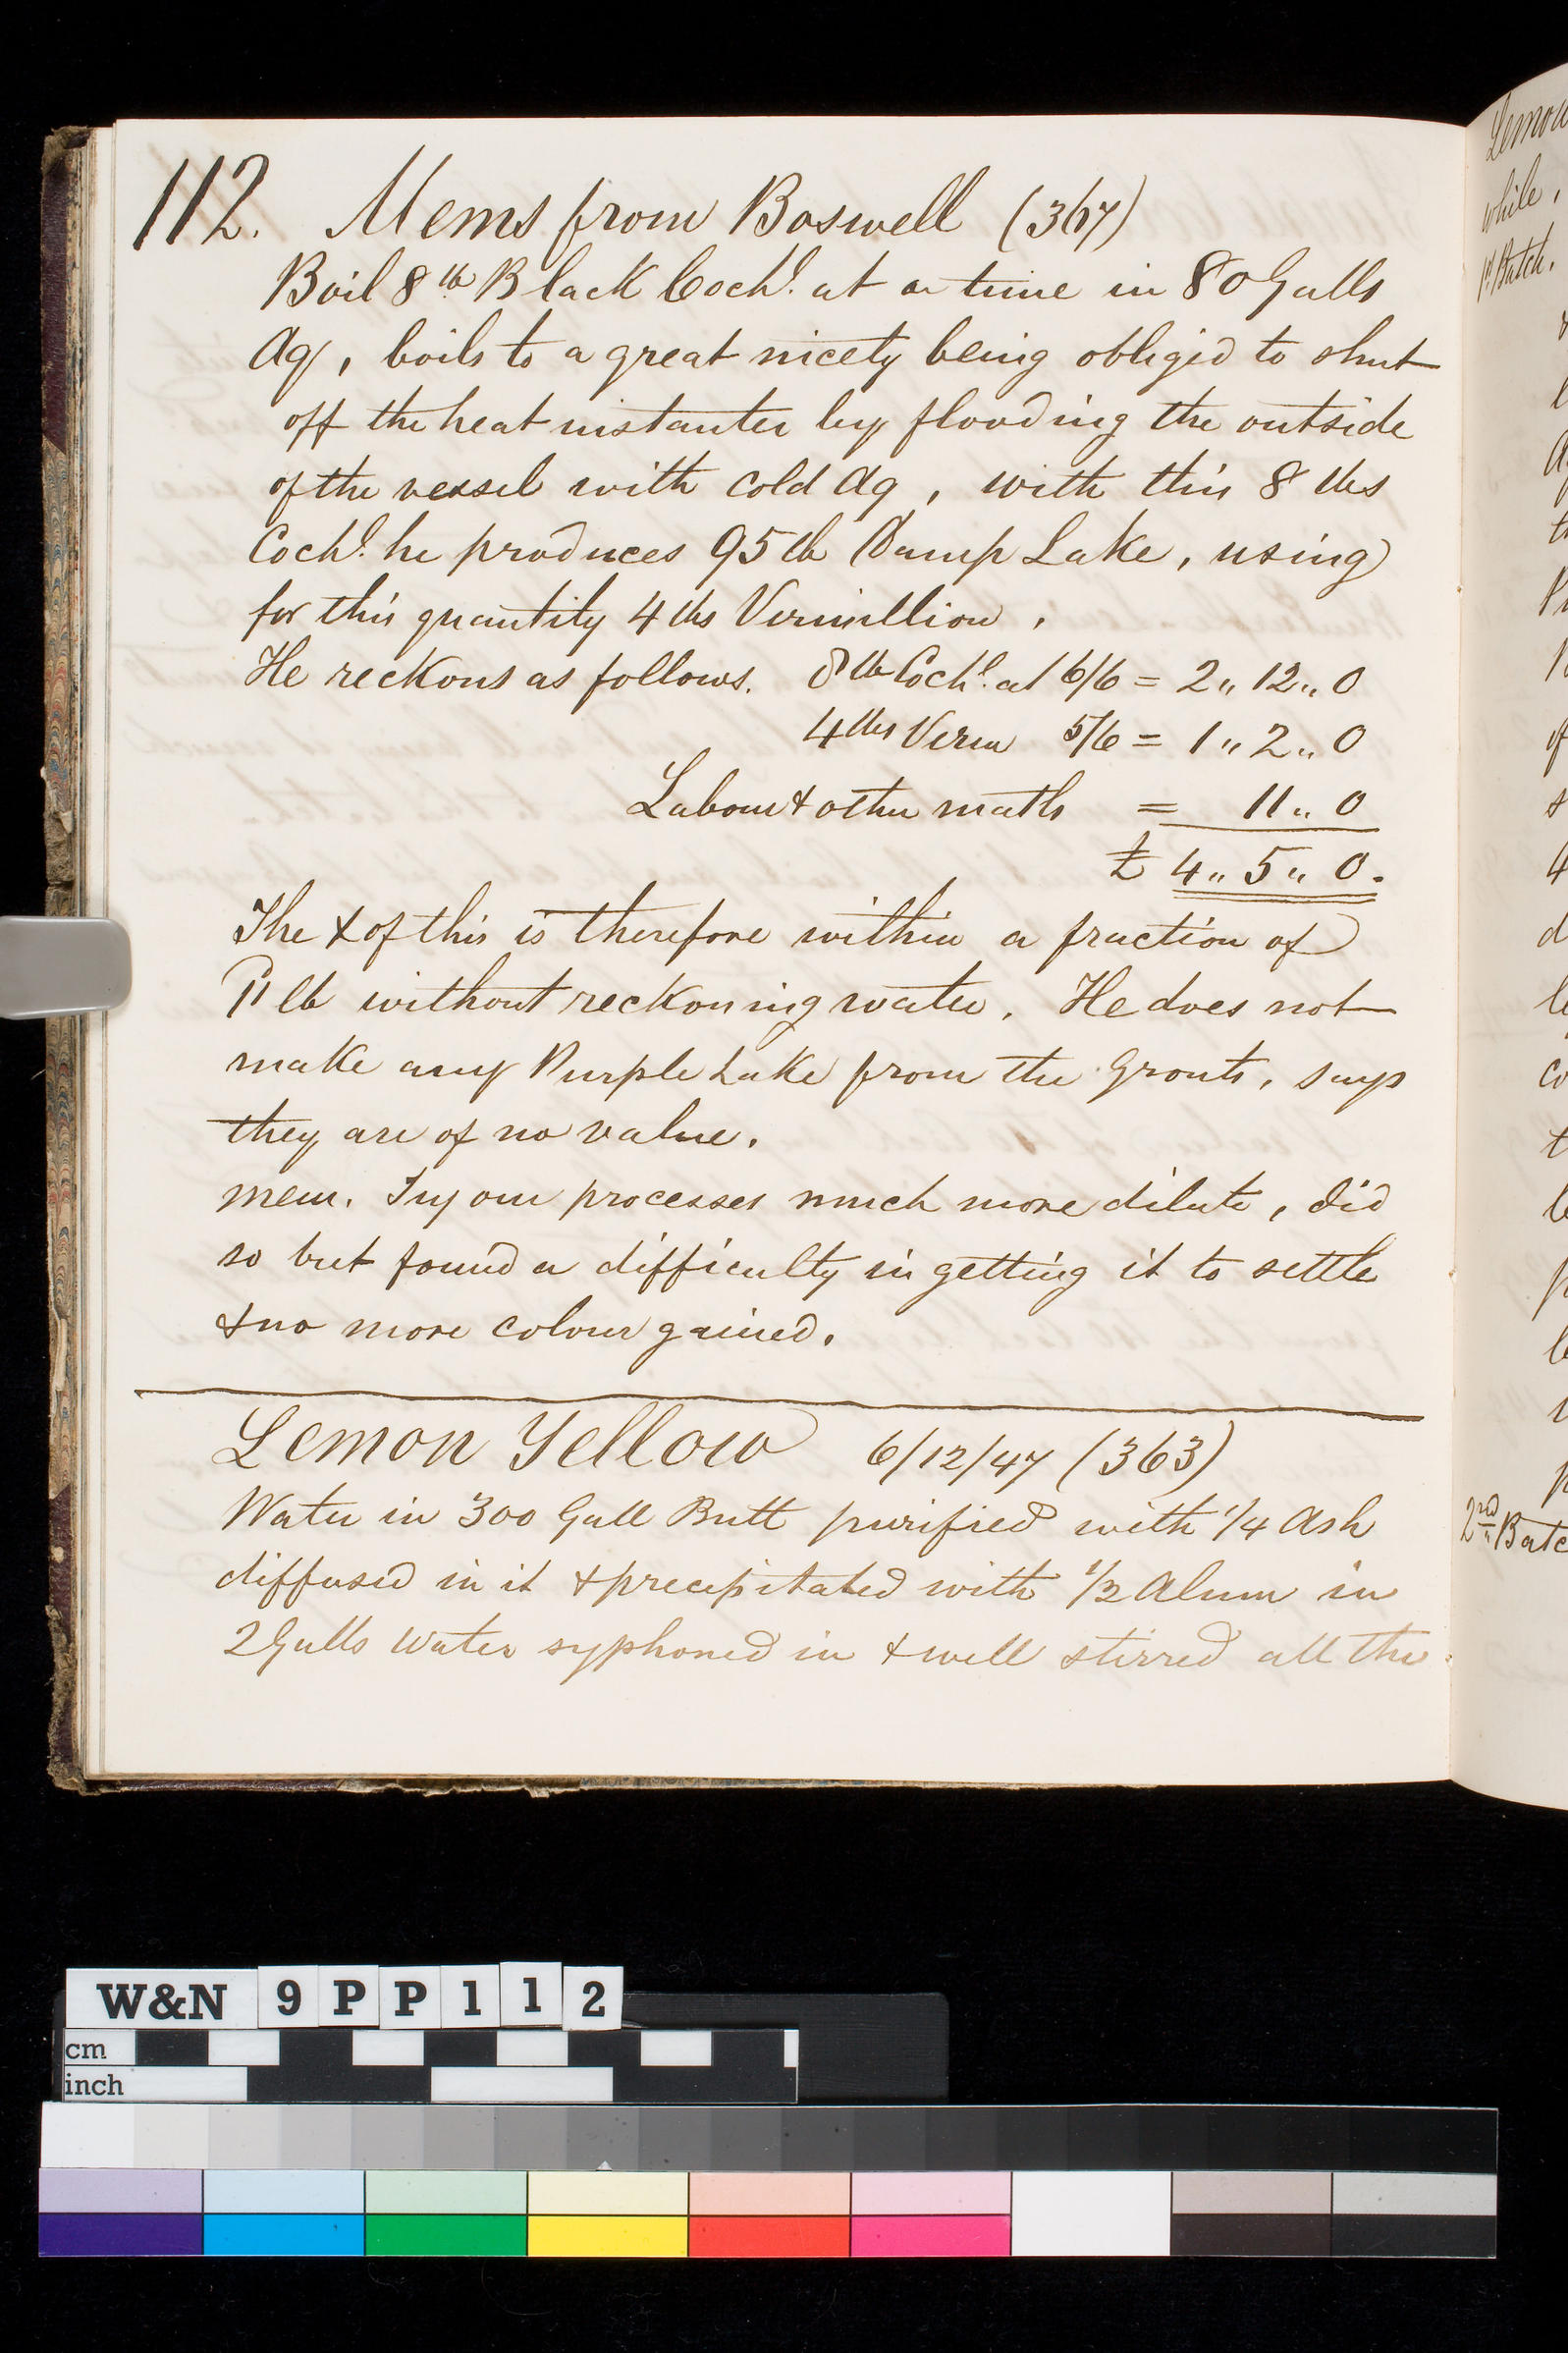 112. Mems from Boswell (367)
Boil 8 lb Black Cochl. at a time in 80 Galls
Aq, boils to a great nicety being obliged to shut
off the heat instanter by flooding the outside
of the vessel with cold Aq, with this 8 lbs
Cochl. he produces 95 lb Damp Lake, using
for this quantity 4 lbs Vermillion.
He reckons as follows. 8 lb Cochl. at 6/6 = 2 " 12 " 0
4 lbs Verm 5/6 = 1 " 2 " 0
Labour & other matls = 11 " 0
£ 4 " 5 " 0.
The & of this is therefore within a fraction of
lb without reckoning water. He does not
make any Purple Lake from the Grouts, says
they are of no value.
mem. Try our processes much more dilute, did
so but found a difficulty in getting it to settle
& no more colour gained.
Lemon Yellow 6/12/47 (363)
Water in 300 Gall Butt purified with 1/4 Ash
diffused in it & precipitated with 1/2 Alum in
2 Galls Water syphoned in & well stirred all the
Lemon
while,
1st Batch.
2nd Batc
W&N 9PP112
cm
inch